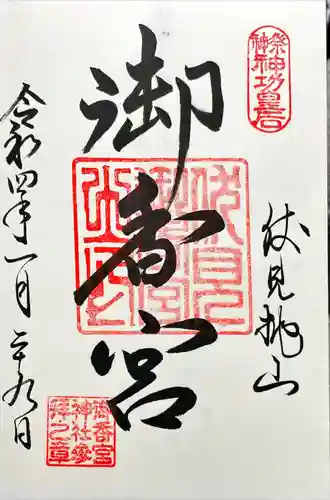 祭神 神功皇后
伏見桃山
御香宮
令和四年一月二十九日
御香宮
神社参
拝之章